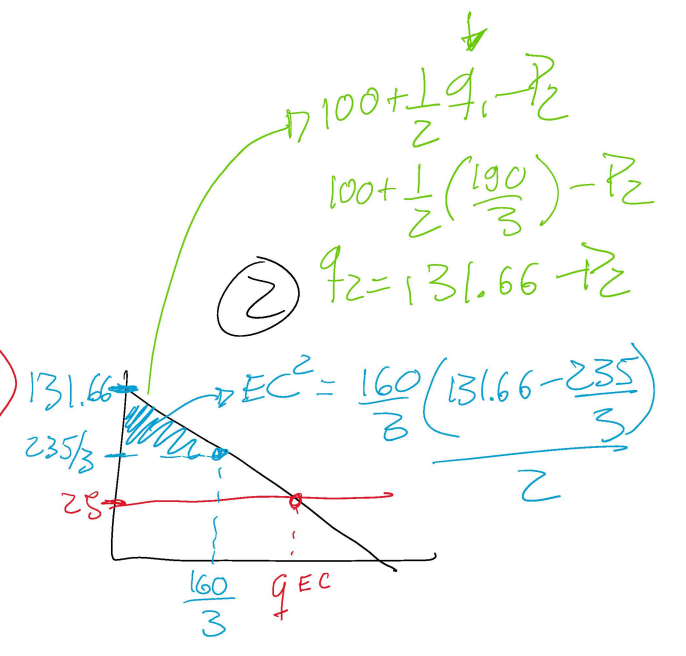 100+1/2 q₁-P₂
100+1/2(190/3)-P₂
② q₂=131.66-P₂
131.66 EC²=160/3(131.66-235/3)/2
235/3
25
160/3 qᴱᶜ